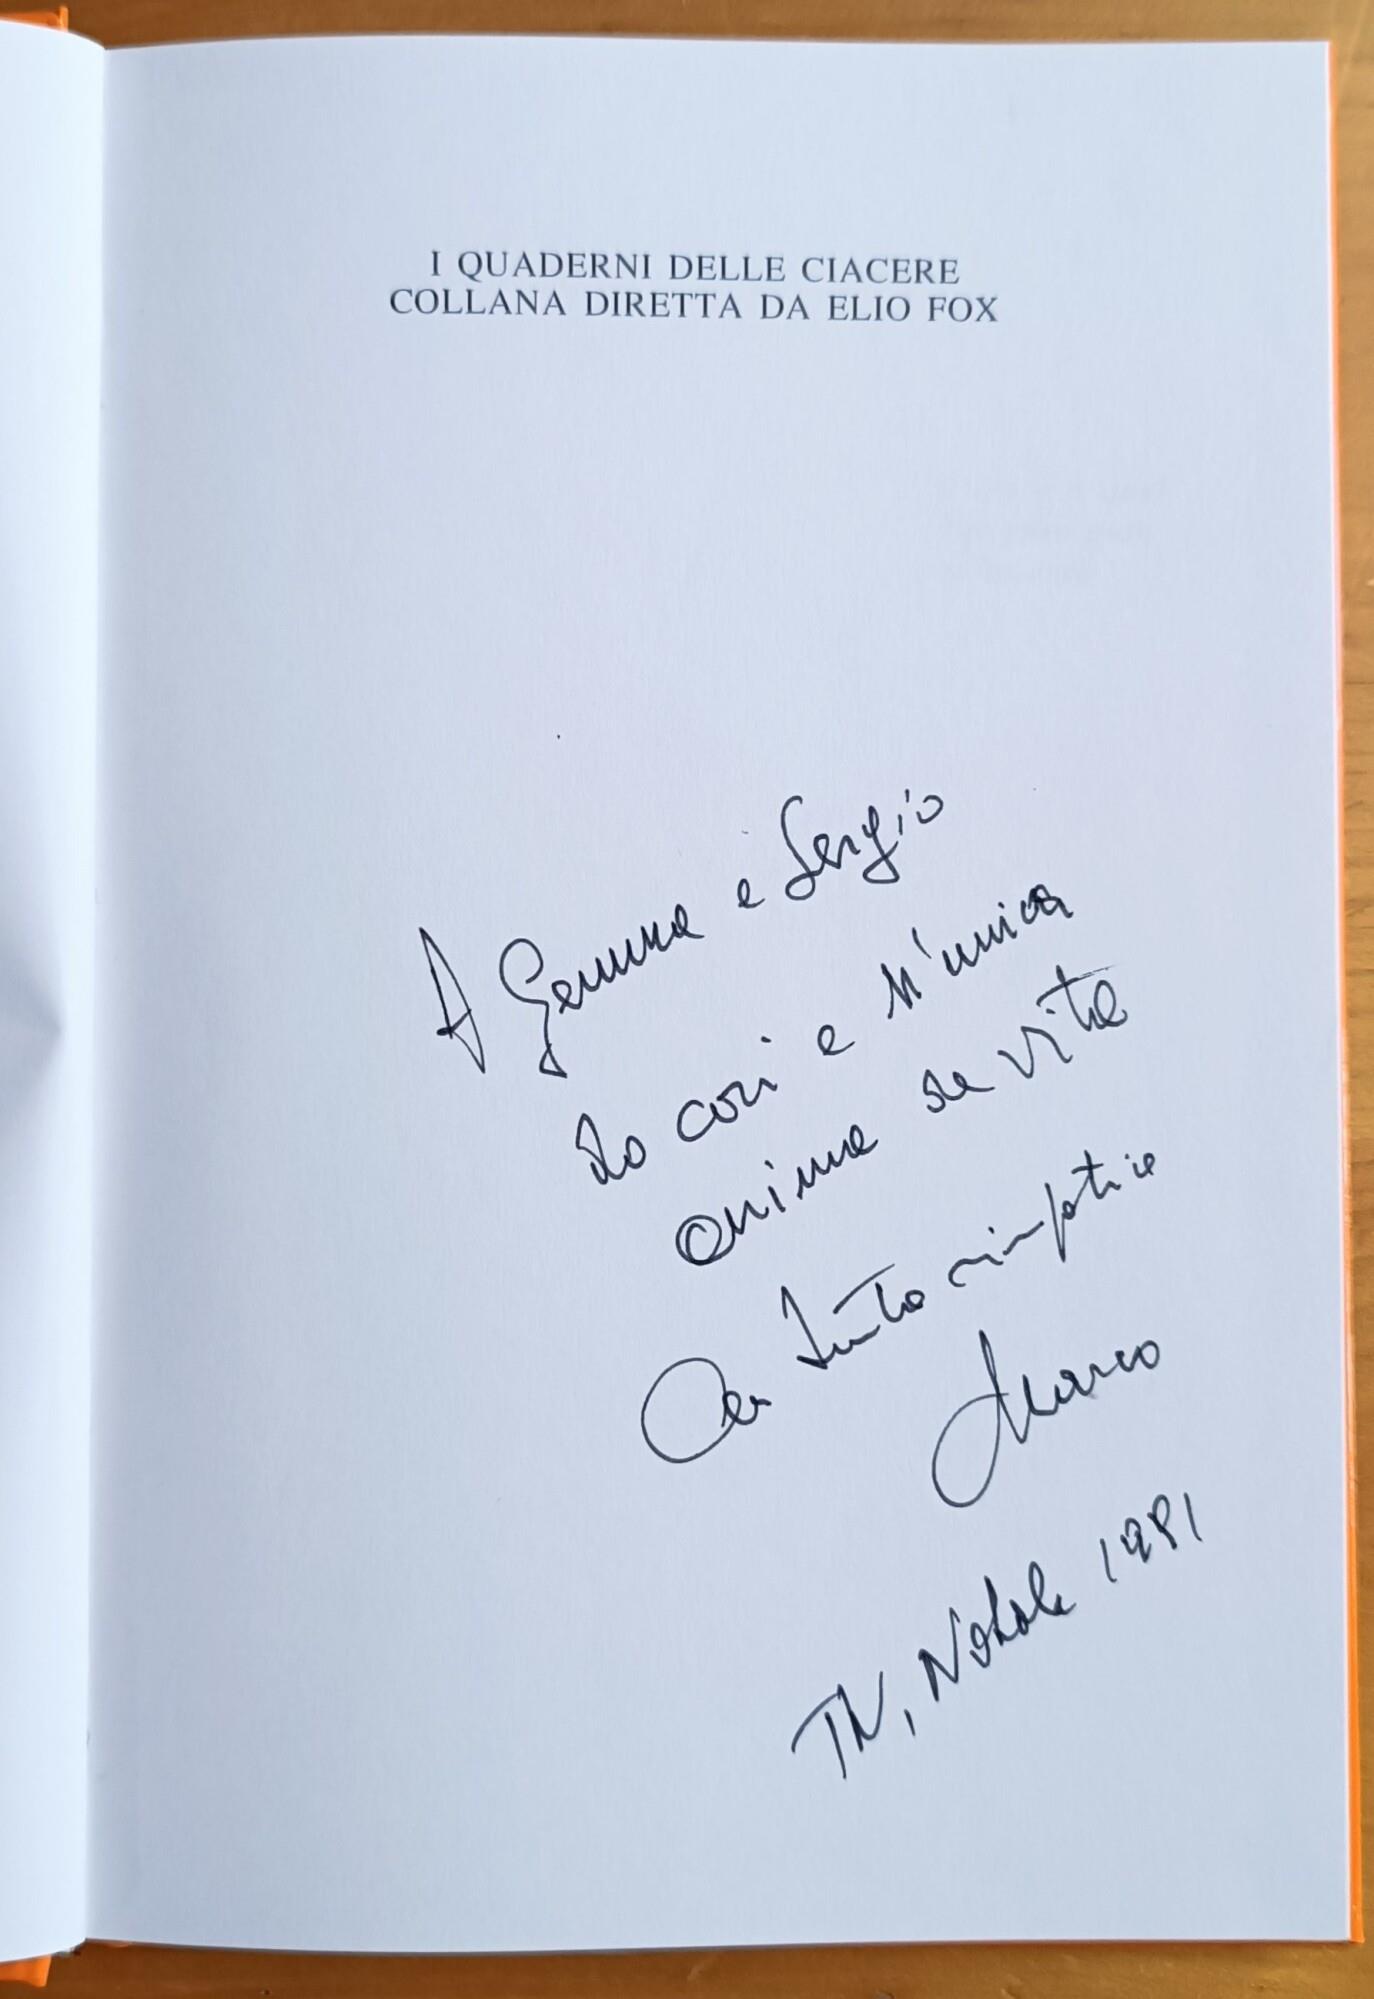 I QUADERNI DELLE CIACERE
COLLANA DIRETTA DA ELIO FOX
A Gemma e Sergio
do cori e n'unica
anima de vita
Con tanta simpatia
Marco
TN, Natale 1981